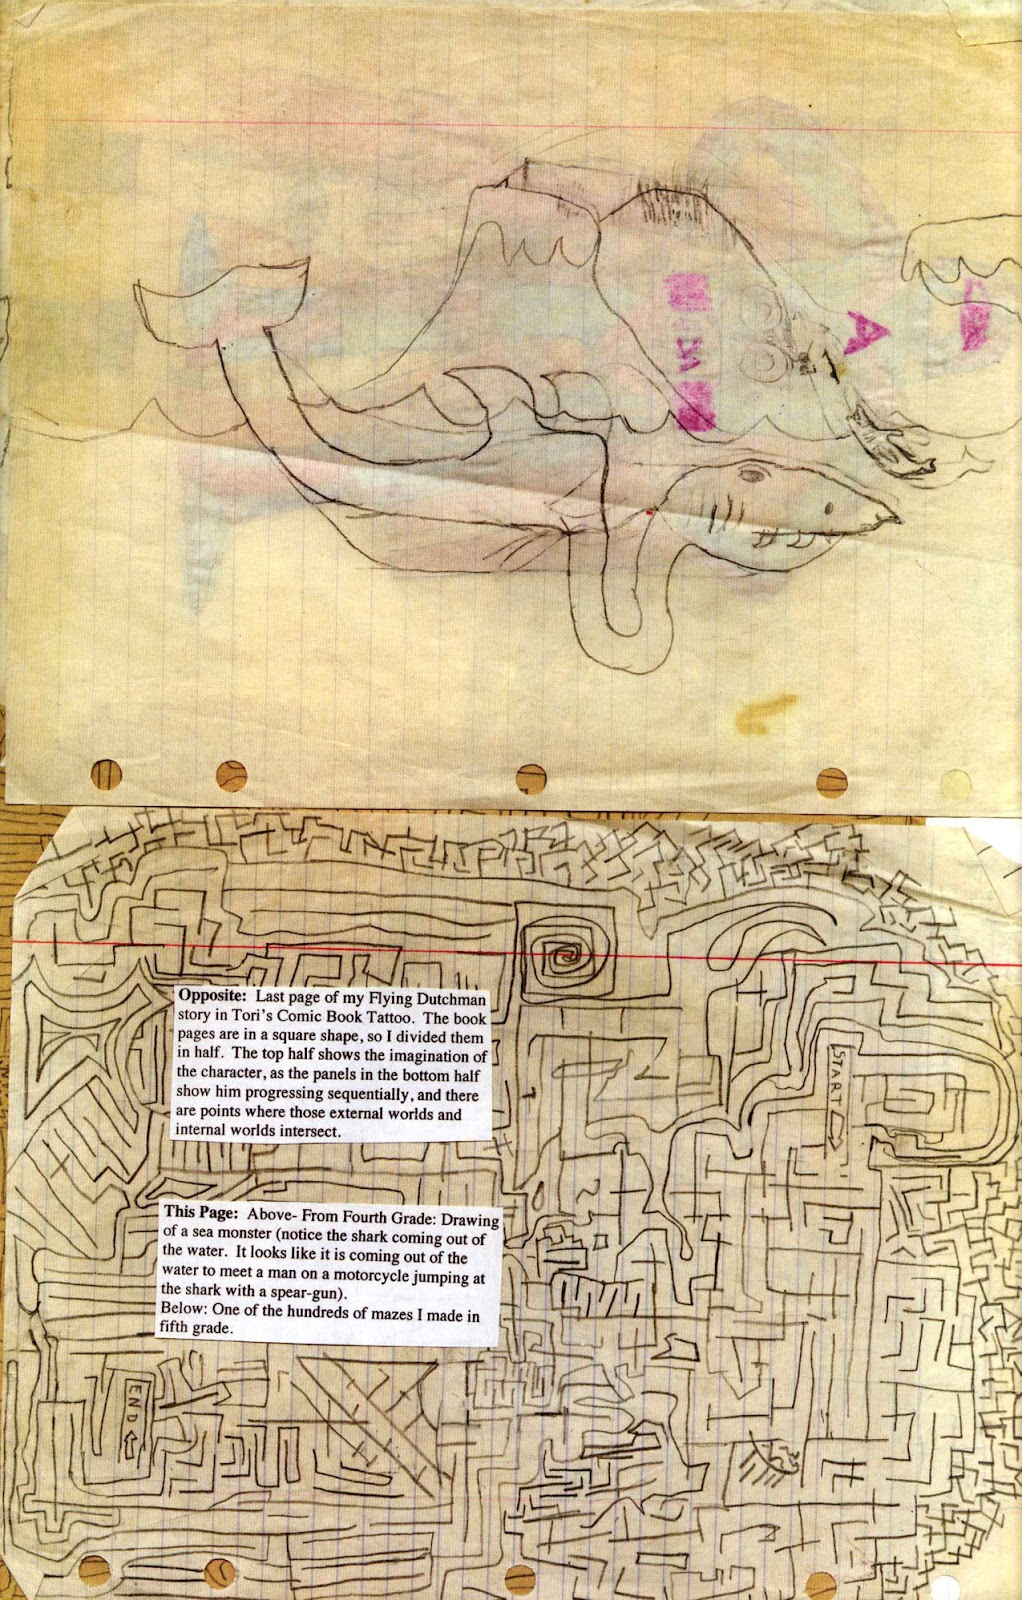 Opposite: Last page of my Flying Dutchman
story in Tori's Comic Book Tattoo. The book
pages are in a square shape, so I divided them
in half. The top half shows the imagination of
the character, as the panels in the bottom half
show him progressing sequentially, and there
are points where those external worlds and
internal worlds intersect.
START
This Page: Above- From Fourth Grade: Drawing
of a sea monster (notice the shark coming out of
the water. It looks like it is coming out of the
water to meet a man on a motorcycle jumping at
the shark with a spear-gun).
Below: One of the hundreds of mazes I made in
fifth grade.
END